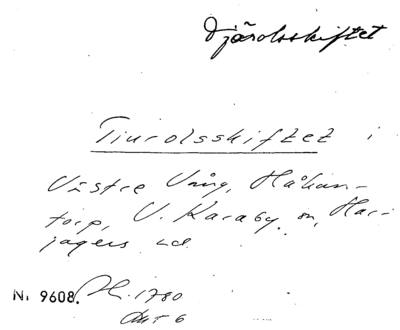 Djärolsskiftet
Tiurolsskiftet i
Västre Vång, Håkan-
torp, V. Karaby m, Har-
jagers hd.
Nr 9608. Ak. 1780
Akt 6